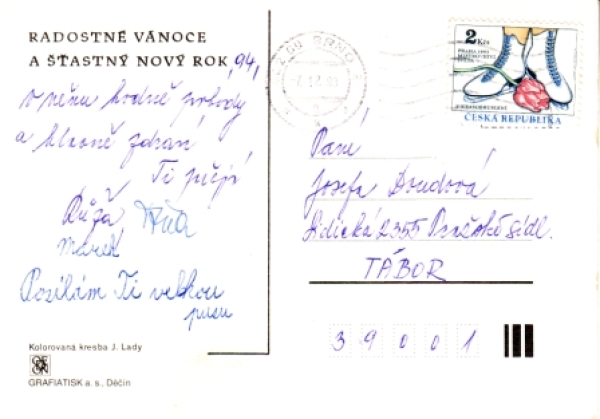 RADOSTNÉ VÁNOCE
A ŠŤASTNÝ NOVÝ ROK '94,
v něm hodně pohody
a hlavně zdraví
Ti přejí
Růža,
Marek
Posílám Ti velkou
pusu
Kolorovaná kresba J. Lady
GRAFIATISK a. s., Děčín
BRNO
2 Kčs
ČESKÁ REPUBLIKA
Paní
Josefa Doudová
Lidická 2355 Pražské sídl.
TÁBOR
39001